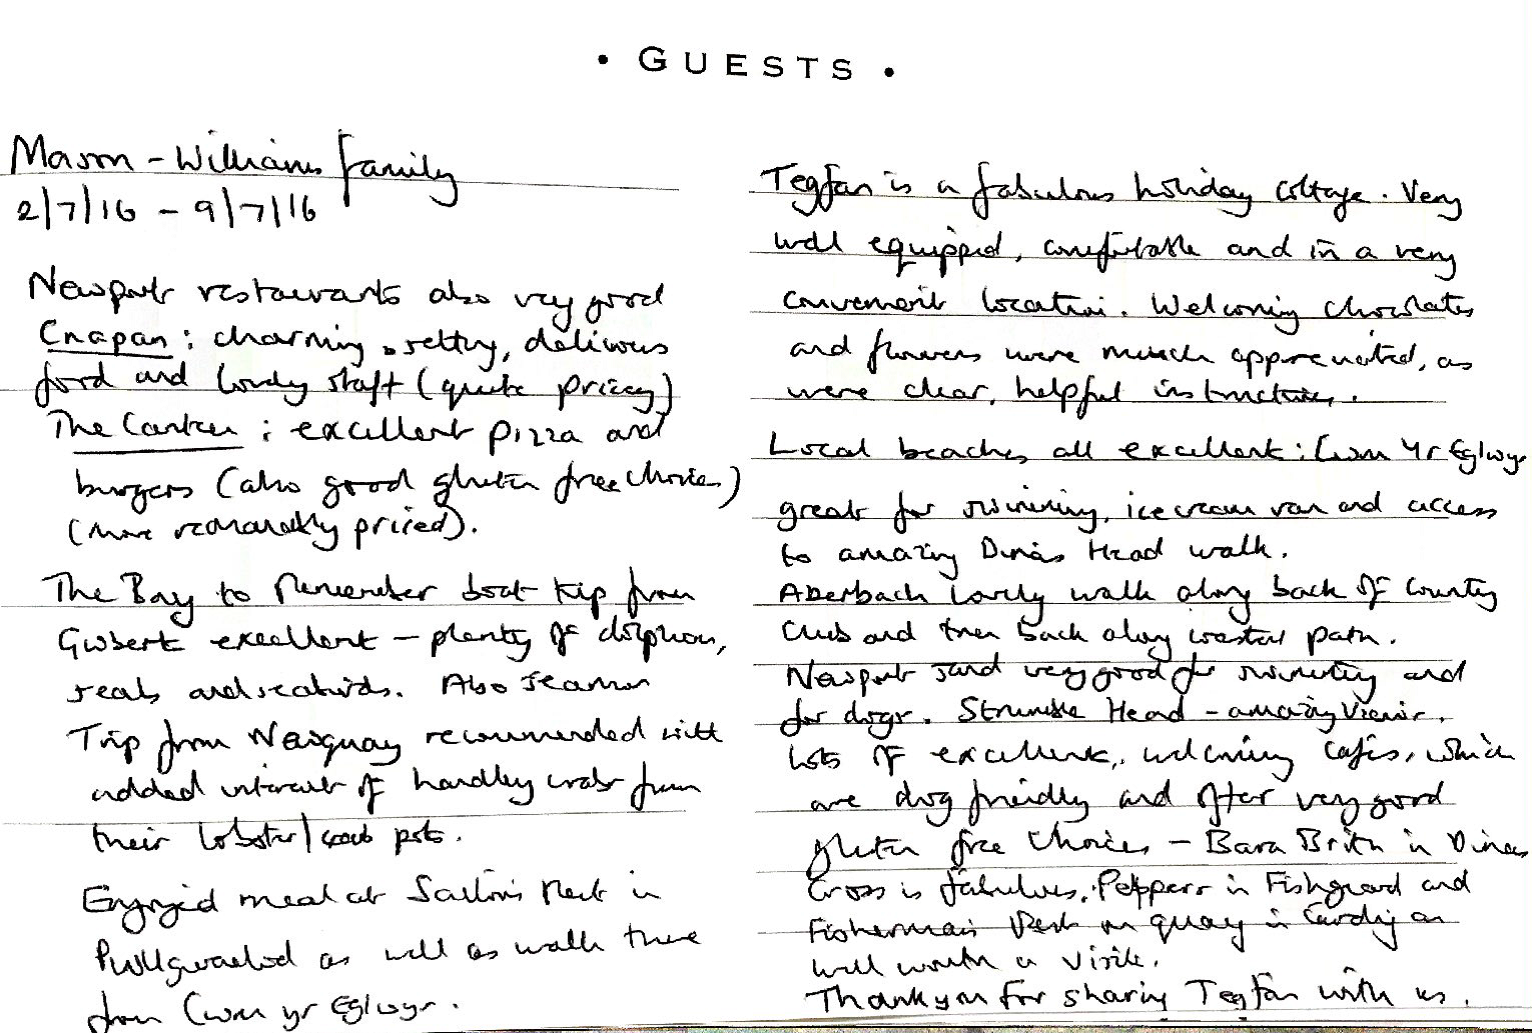 • GUESTS •
Mason - Williams family
2/7/16 - 9/7/16
Newport restaurants also very good
Cnapan : charming setting, delicious
food and lovely staff (quite pricey)
The Canteen : excellent pizza and
burgers (also good gluten free choices)
(more reasonably priced).
The Bay to Remember boat trip from
Gwbert excellent - plenty of dolphins,
seals and seabirds. Also
Trip from Newquay recommended with
added interest of handling crabs from
their lobster/crab pots.
Enjoyed meal at Sailors Rest in
Pwllgwaelod as well as walk there
from Cwm yr Eglwys.
Tegfan is a fabulous holiday cottage. Very
well equipped, comfortable and in a very
convenient location. Welcoming chocolates
and flowers were much appreciated, as
were clear, helpful instructions.
Local beaches all excellent: Cwm Yr Eglwys
great for swimming, ice cream van and access
to amazing Dinas Head walk.
Aberbach lovely walk along back of Country
Club and then back along coastal path.
Newport sand very good for swimming and
for dogs. Strumble Head - amazing views.
Lots of excellent, welcoming cafés, which
are dog friendly and offer very good
gluten free choices - Bara Brith in Dinas
Cross is fabulous. Peppers in Fishguard and
Fisherman's Rest on quay in Cardigan
well worth a visit.
Thankyou for sharing Tegfan with us.